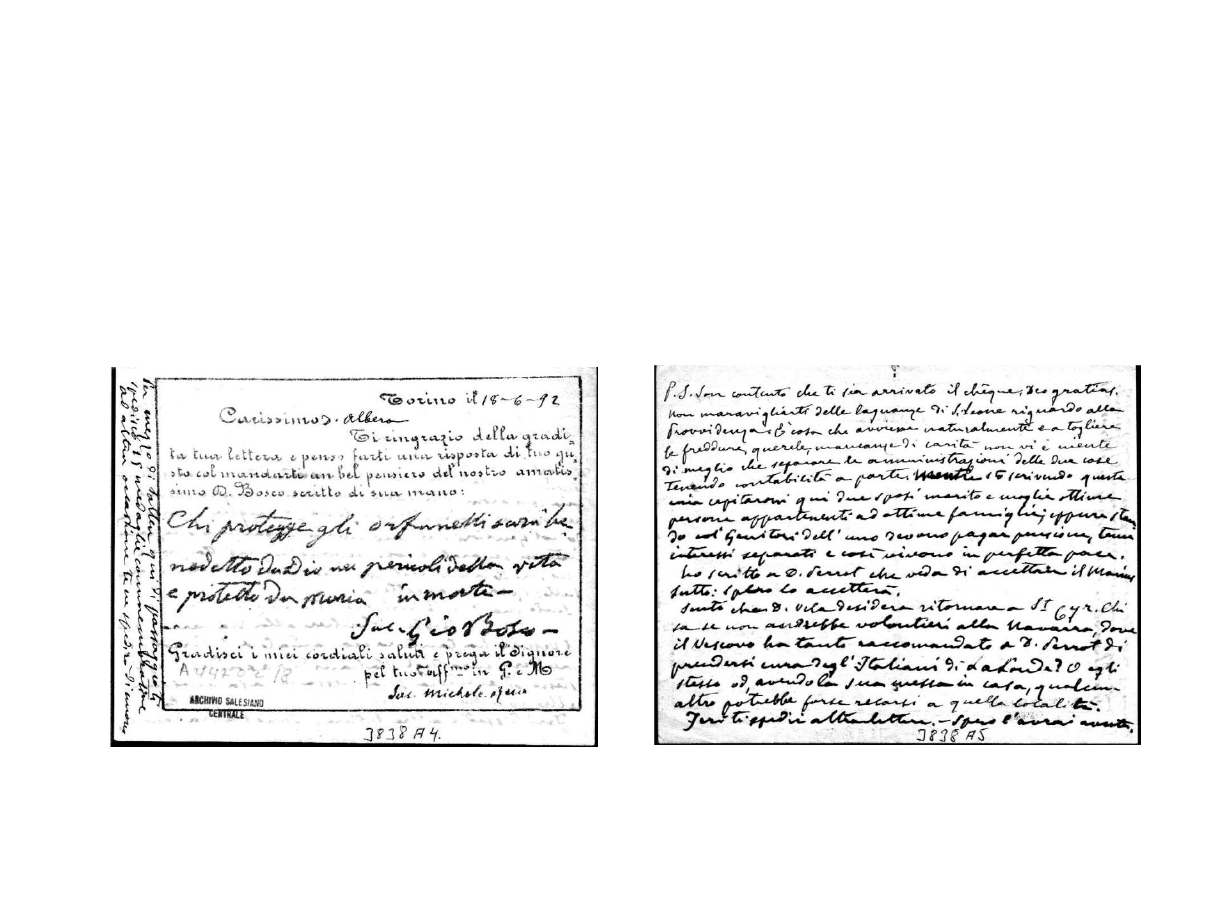 Torino il 18-6-92
Carissimo D. Albera
Ti ringrazio della gradi-
ta tua lettera e penso farti una risposta di tuo gu-
sto col mandarti un bel pensiero del nostro amatis-
simo D. Bosco scritto di sua mano:
Chi protegge gli orfanelli sarà be-
nedetto da Dio nei pericoli della vita
e protetto da Maria in morte -
Sac. Gio Bosco -
Gradisci i miei cordiali saluti e prega il Signore
pel tuo aff.mo in G. e M
Sac. Michele Rua
A4420218
ARCHIVIO SALESIANO
CENTRALE
3838 A4.
Per mezzo di qui di passaggio ti
spedirò 15 medaglie commemorative
Ad altra occasione te ne spedirò
P.S. Son contento che ti sia arrivato il chèque; Deo gratias.
Non maravigliarti delle lagnanze di S. Leone riguardo alla
Provvidenza: è cosa che avviene naturalmente e a togliere
le freddure, querele, mancanze di carità non vi è niente
di meglio che separare le amministrazioni delle due case
tenendo contabilità a parte. Mentre sto scrivendo questa
mia capitaroni qui due sposi marito e moglie ottime
persone appartenenti ad ottime famiglie; eppure stan-
do coi Genitori dell'uno devono pagar pensione, tener
interessi separati e così vivono in perfetta pace.
Ho scritto a D. Perrot che veda di accettar il
tutto: spero lo accetterà.
Sento che D. Vela desidera ritornare a St Cyr. Chi
sa se non andrebbe volontieri alla Navarra, dove
il Vescovo ha tanto raccomandato a D. Perrot di
prendersi cura degl'Italiani di La Londa? O egli
stesso od, avendo la sua messa in casa, qualcun
altro potrebbe forse recarsi a quella località.
Jeri ti spedii altra lettera. - Spero l'avrai avuta.
3838 A5